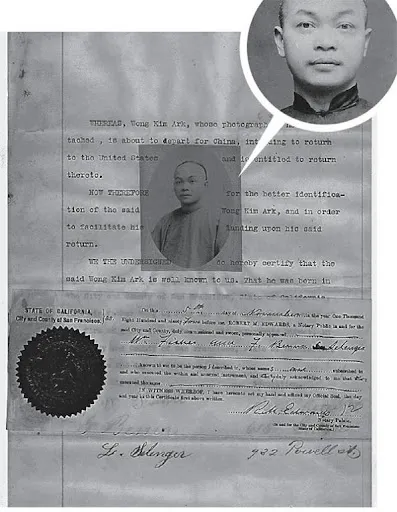 WHEREAS, Wong Kim Ark, whose photograph
tached , is about to depart for China, intending to return
to the United States and is entitled to return
thereto.
NOW THEREFORE for the better identifica-
tion of the said Wong Kim Ark, and in order
to facilitate his landing upon his said
return.
WE THE UNDERSIGNED do hereby certify that the
said Wong Kim Ark is well known to us. That he was born in
STATE OF CALIFORNIA,
City and County of San Francisco. } ss.
On this 5th day of November in the year One Thousand
Eight Hundred and ninety four before me, ROBERT M. EDWARDS, a Notary Public in and for the
said City and County, duly commissioned and sworn, personally appeared
W. Fisher and F. Selenger
known to me to be the person described in, whose name subscribed to
and who executed the within and annexed instrument, and acknowledged to me that he
executed the same
IN WITNESS WHEREOF, I have hereunto set my hand and affixed my Official Seal, the day
and year in this Certificate first above written.
Notary Public
In and for the City and County of San Francisco
State of California.
L. Selenger 922 Powell St